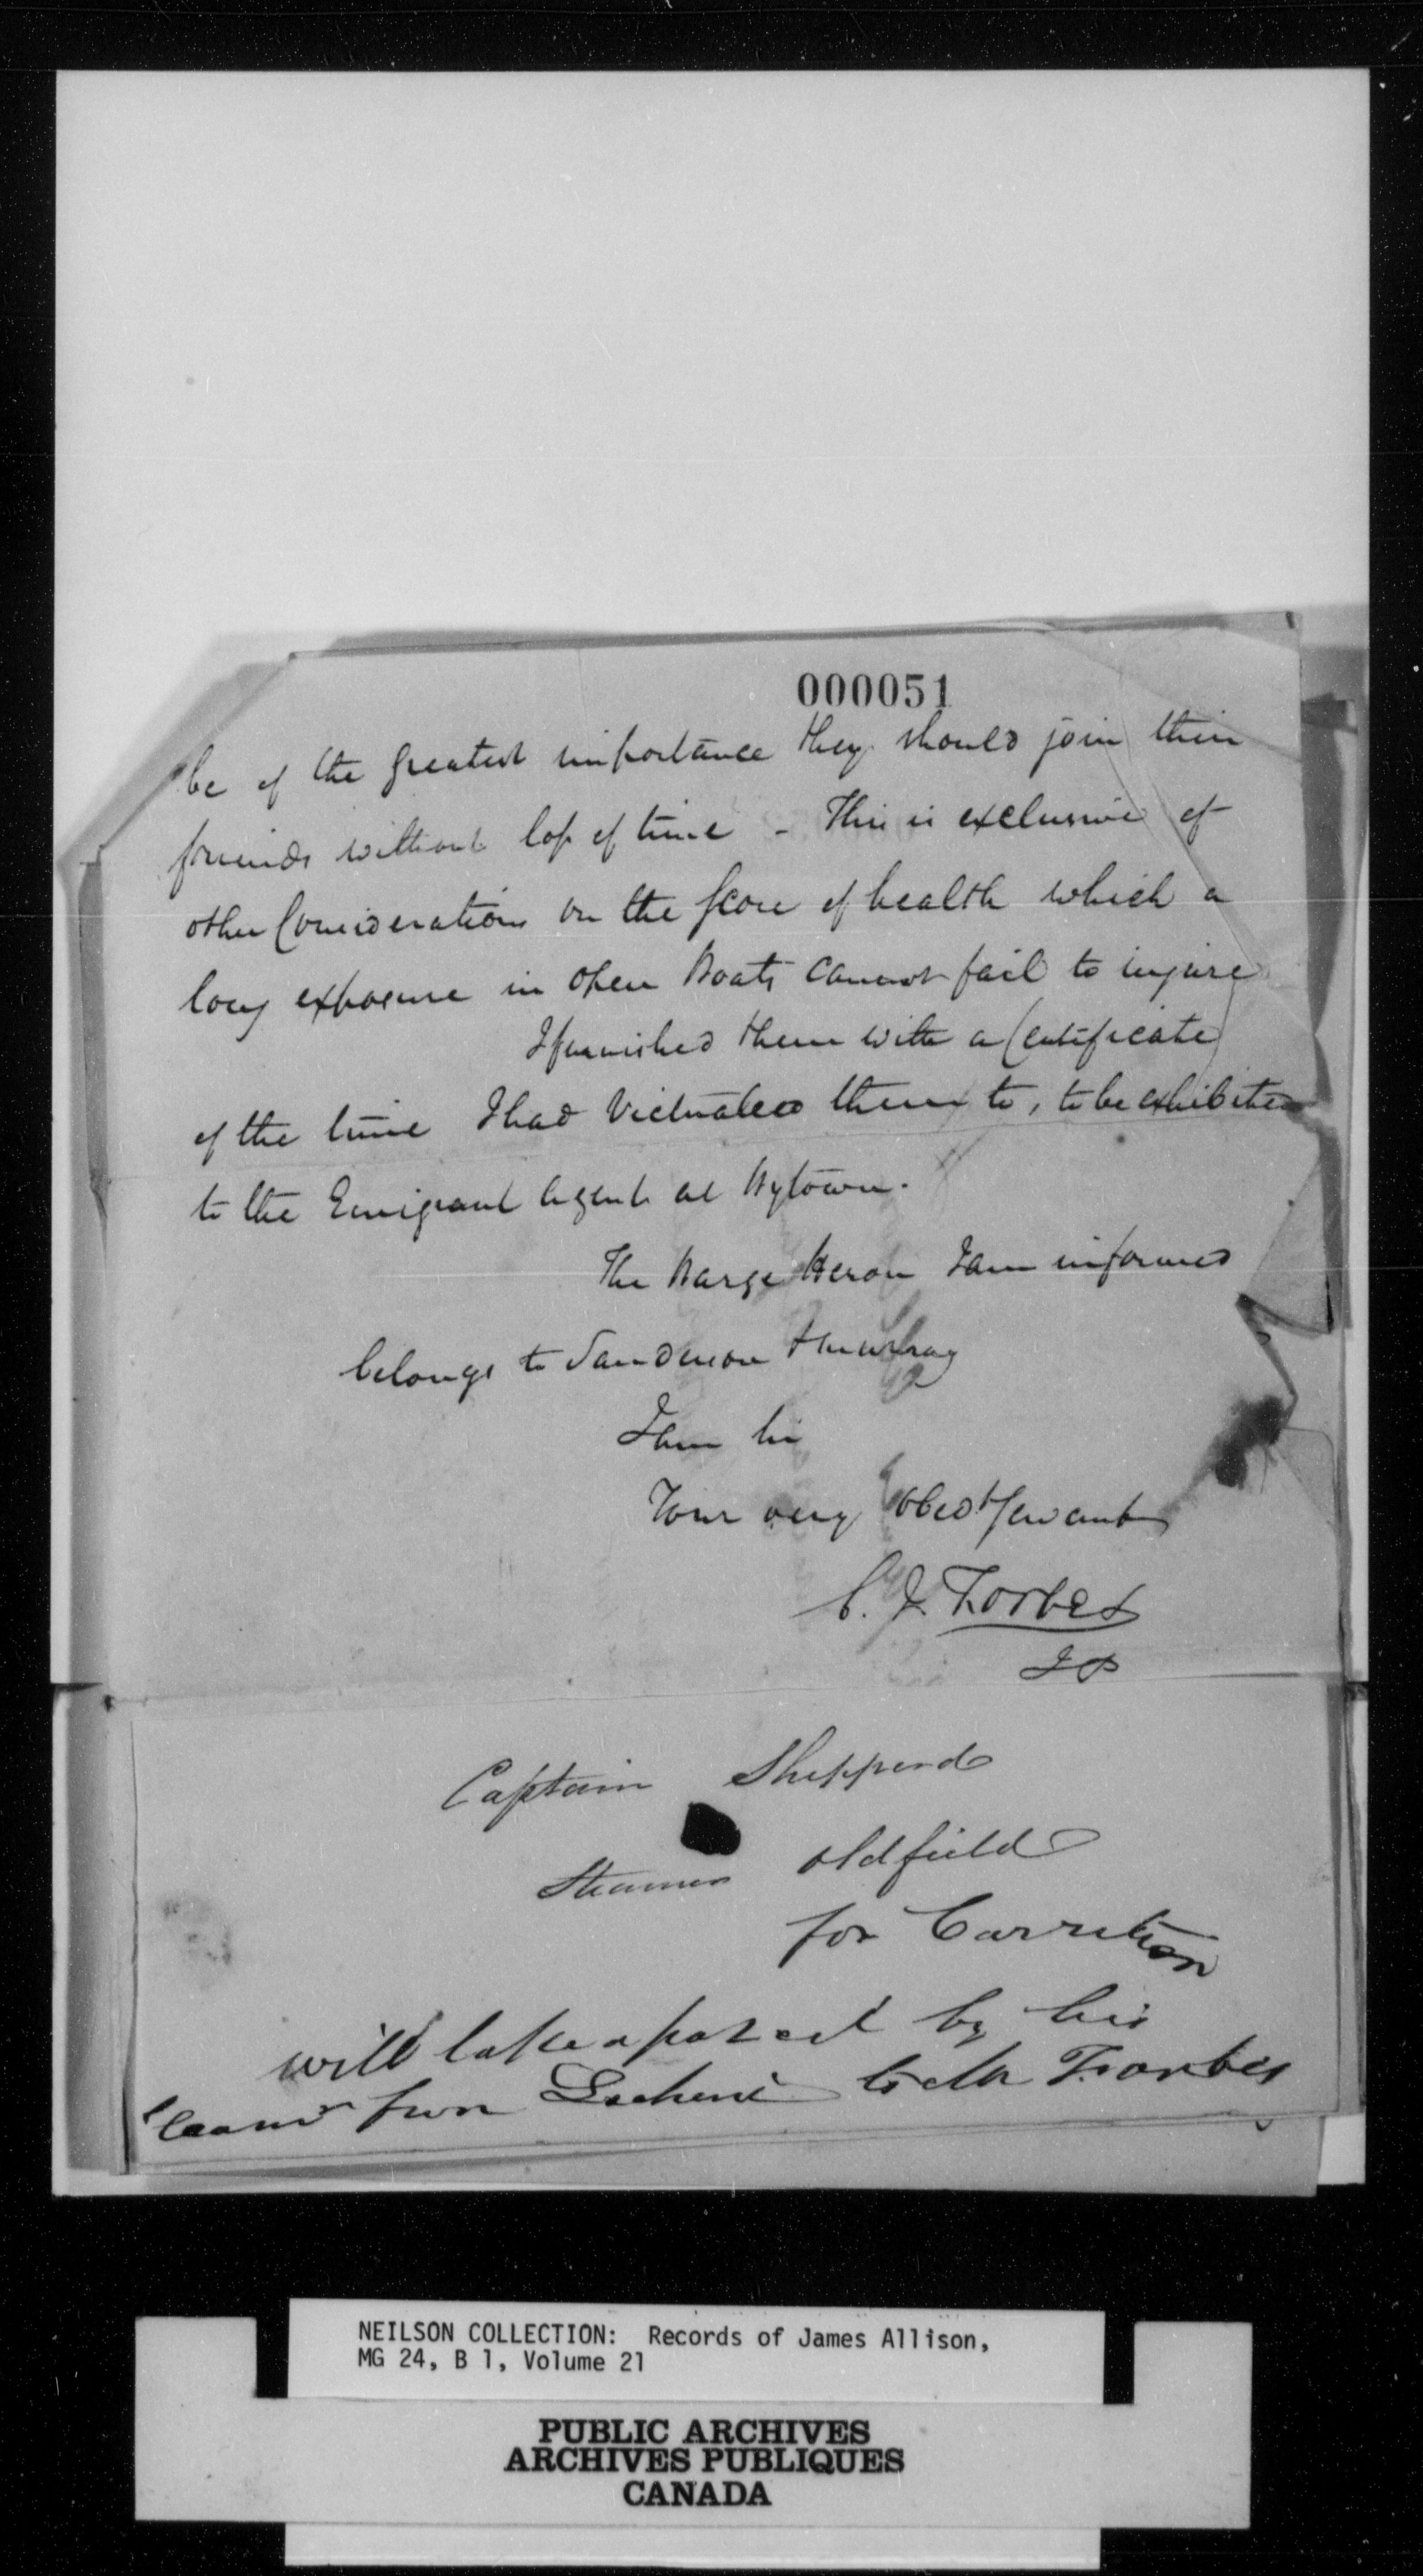 000051
be of the greatest importance they should join their
friends without loss of time - This is exclusive of
other Considerations on the score of health which a
long exposure in open Boats cannot fail to injure
I furnished them with a Certificate
of the time I had Victualled them to, to be exhibited
to the Emigrant Agent at Bytown.
The Barge Heron I am informed
belongs to Sanderson & Murray
I am Sir
Your very Obedt Servant
C. J. Forbes
JP
Captain Shepperd
Steamer oldfield
for Carrillion
will take aparcel by his
from Lachine to Mr Forbes
NEILSON COLLECTION: Records of James Allison,
MG 24, B 1, Volume 21
PUBLIC ARCHIVES
ARCHIVES PUBLIQUES
CANADA